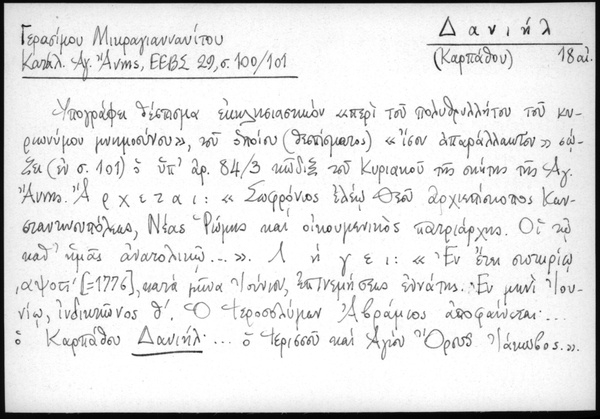 Γερασίμου Μικραγιαννανίτου
Δανιήλ
Κατάλ. Ἁγ. Ἄννης, ΕΕΒΣ 29, σ. 100/101
(Καρπάθου) 18 αἰ.
Ὑπογράφει θέσπισμα ἐκκλησιαστικόν «περὶ τοῦ πολυθρυλλήτου τοῦ κυ-
ριωνύμου μνημοσύνου», τοῦ ὁποίου (θεσπίσματος) «ἴσον ἀπαράλλακτον» σῴ-
ζει (ἐν σ. 101) ὁ ὑπ' ἀρ. 84/3 κῶδιξ τοῦ Κυριακοῦ τῆς σκήτης τῆς Ἁγ.
Ἄννης. Ἄρχεται: «Σωφρόνιος ἐλέῳ Θεοῦ ἀρχιεπίσκοπος Κων-
σταντινουπόλεως, Νέας Ῥώμης καὶ οἰκουμενικὸς πατριάρχης. Οἱ τῷ
καθ' ἡμᾶς ἀνατολικῷ...». Λήγει: «Ἐν ἔτει σωτηρίῳ
͵αψοϛ' [=1776], κατὰ μῆνα Ἰούνιον, ἐπινεμήσεως ἐννάτης. Ἐν μηνὶ Ἰου-
νίῳ, ἰνδικτιῶνος θ'. Ὁ Ἱεροσολύμων Ἀβράμιος ἀποφαίνεται...
ὁ Καρπάθου Δανιήλ... ὁ Ἱερισσοῦ καὶ Ἁγίου Ὄρους Ἰάκωβος.».